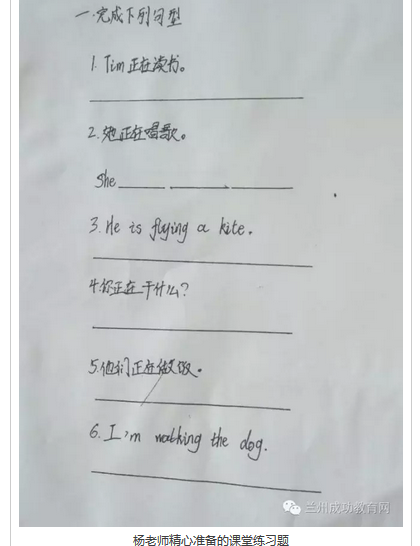 一.完成下列句型
1.Tim正在读书。
2.她正在唱歌。
She
3.He is flying a kite.
4.你正在干什么?
5.他们正在做饭。
6.I'm walking the dog.
兰州成功教育网
杨老师精心准备的课堂练习题